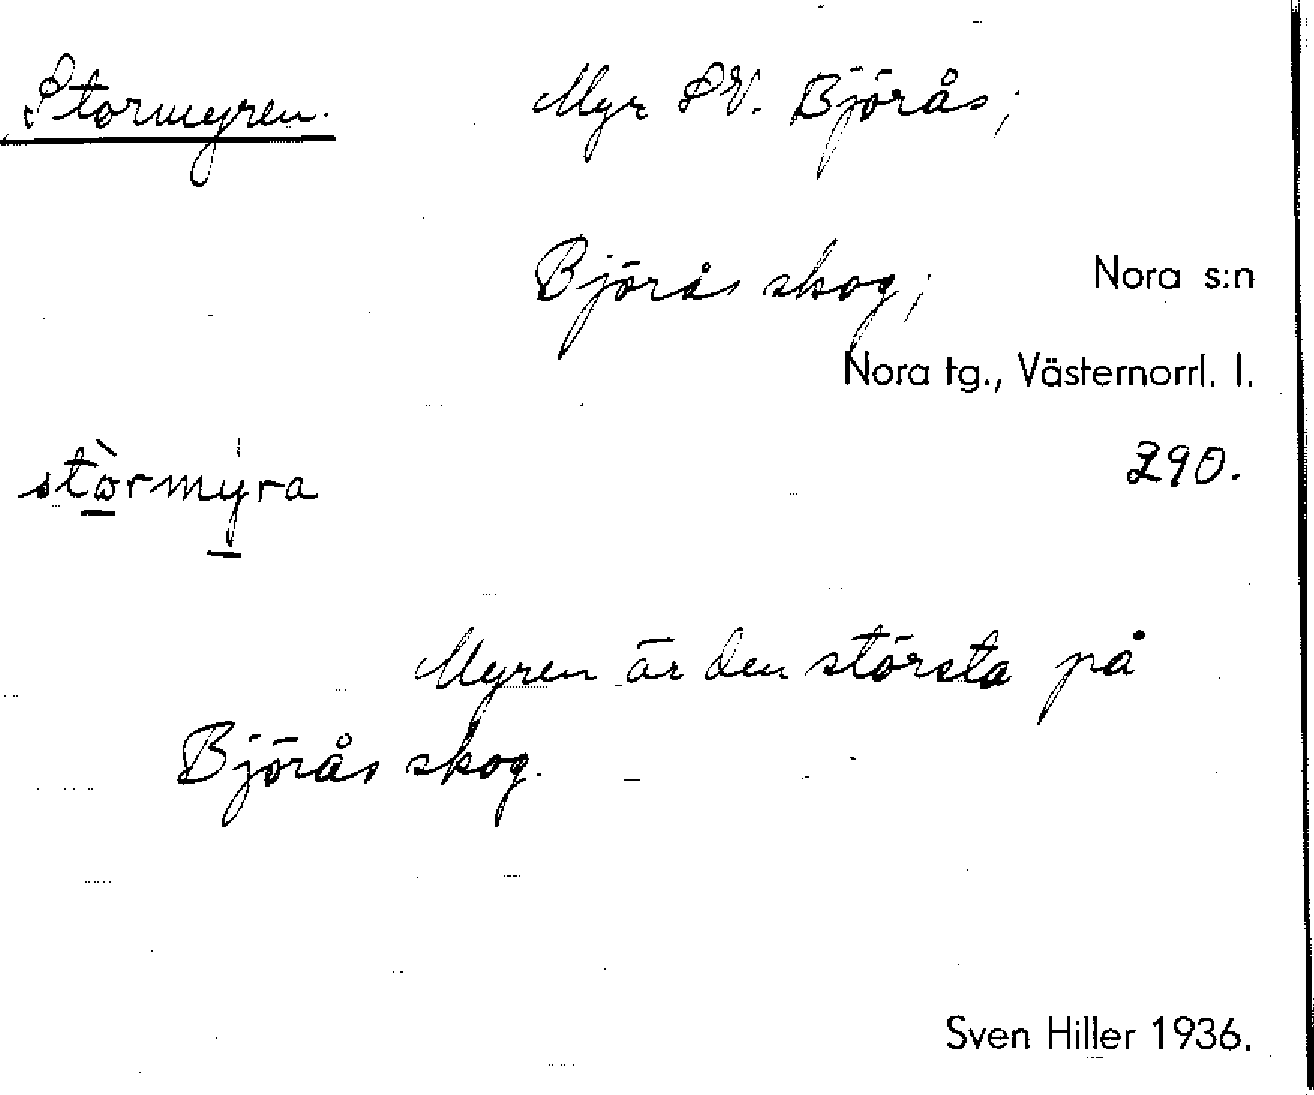 Stormyren. Myr SV. Björås;
Björås skog; Nora s:n
Nora tg., Västernorrl. l.
stòrmýra 290.
Myren är den största på
Björås skog.
Sven Hiller 1936.